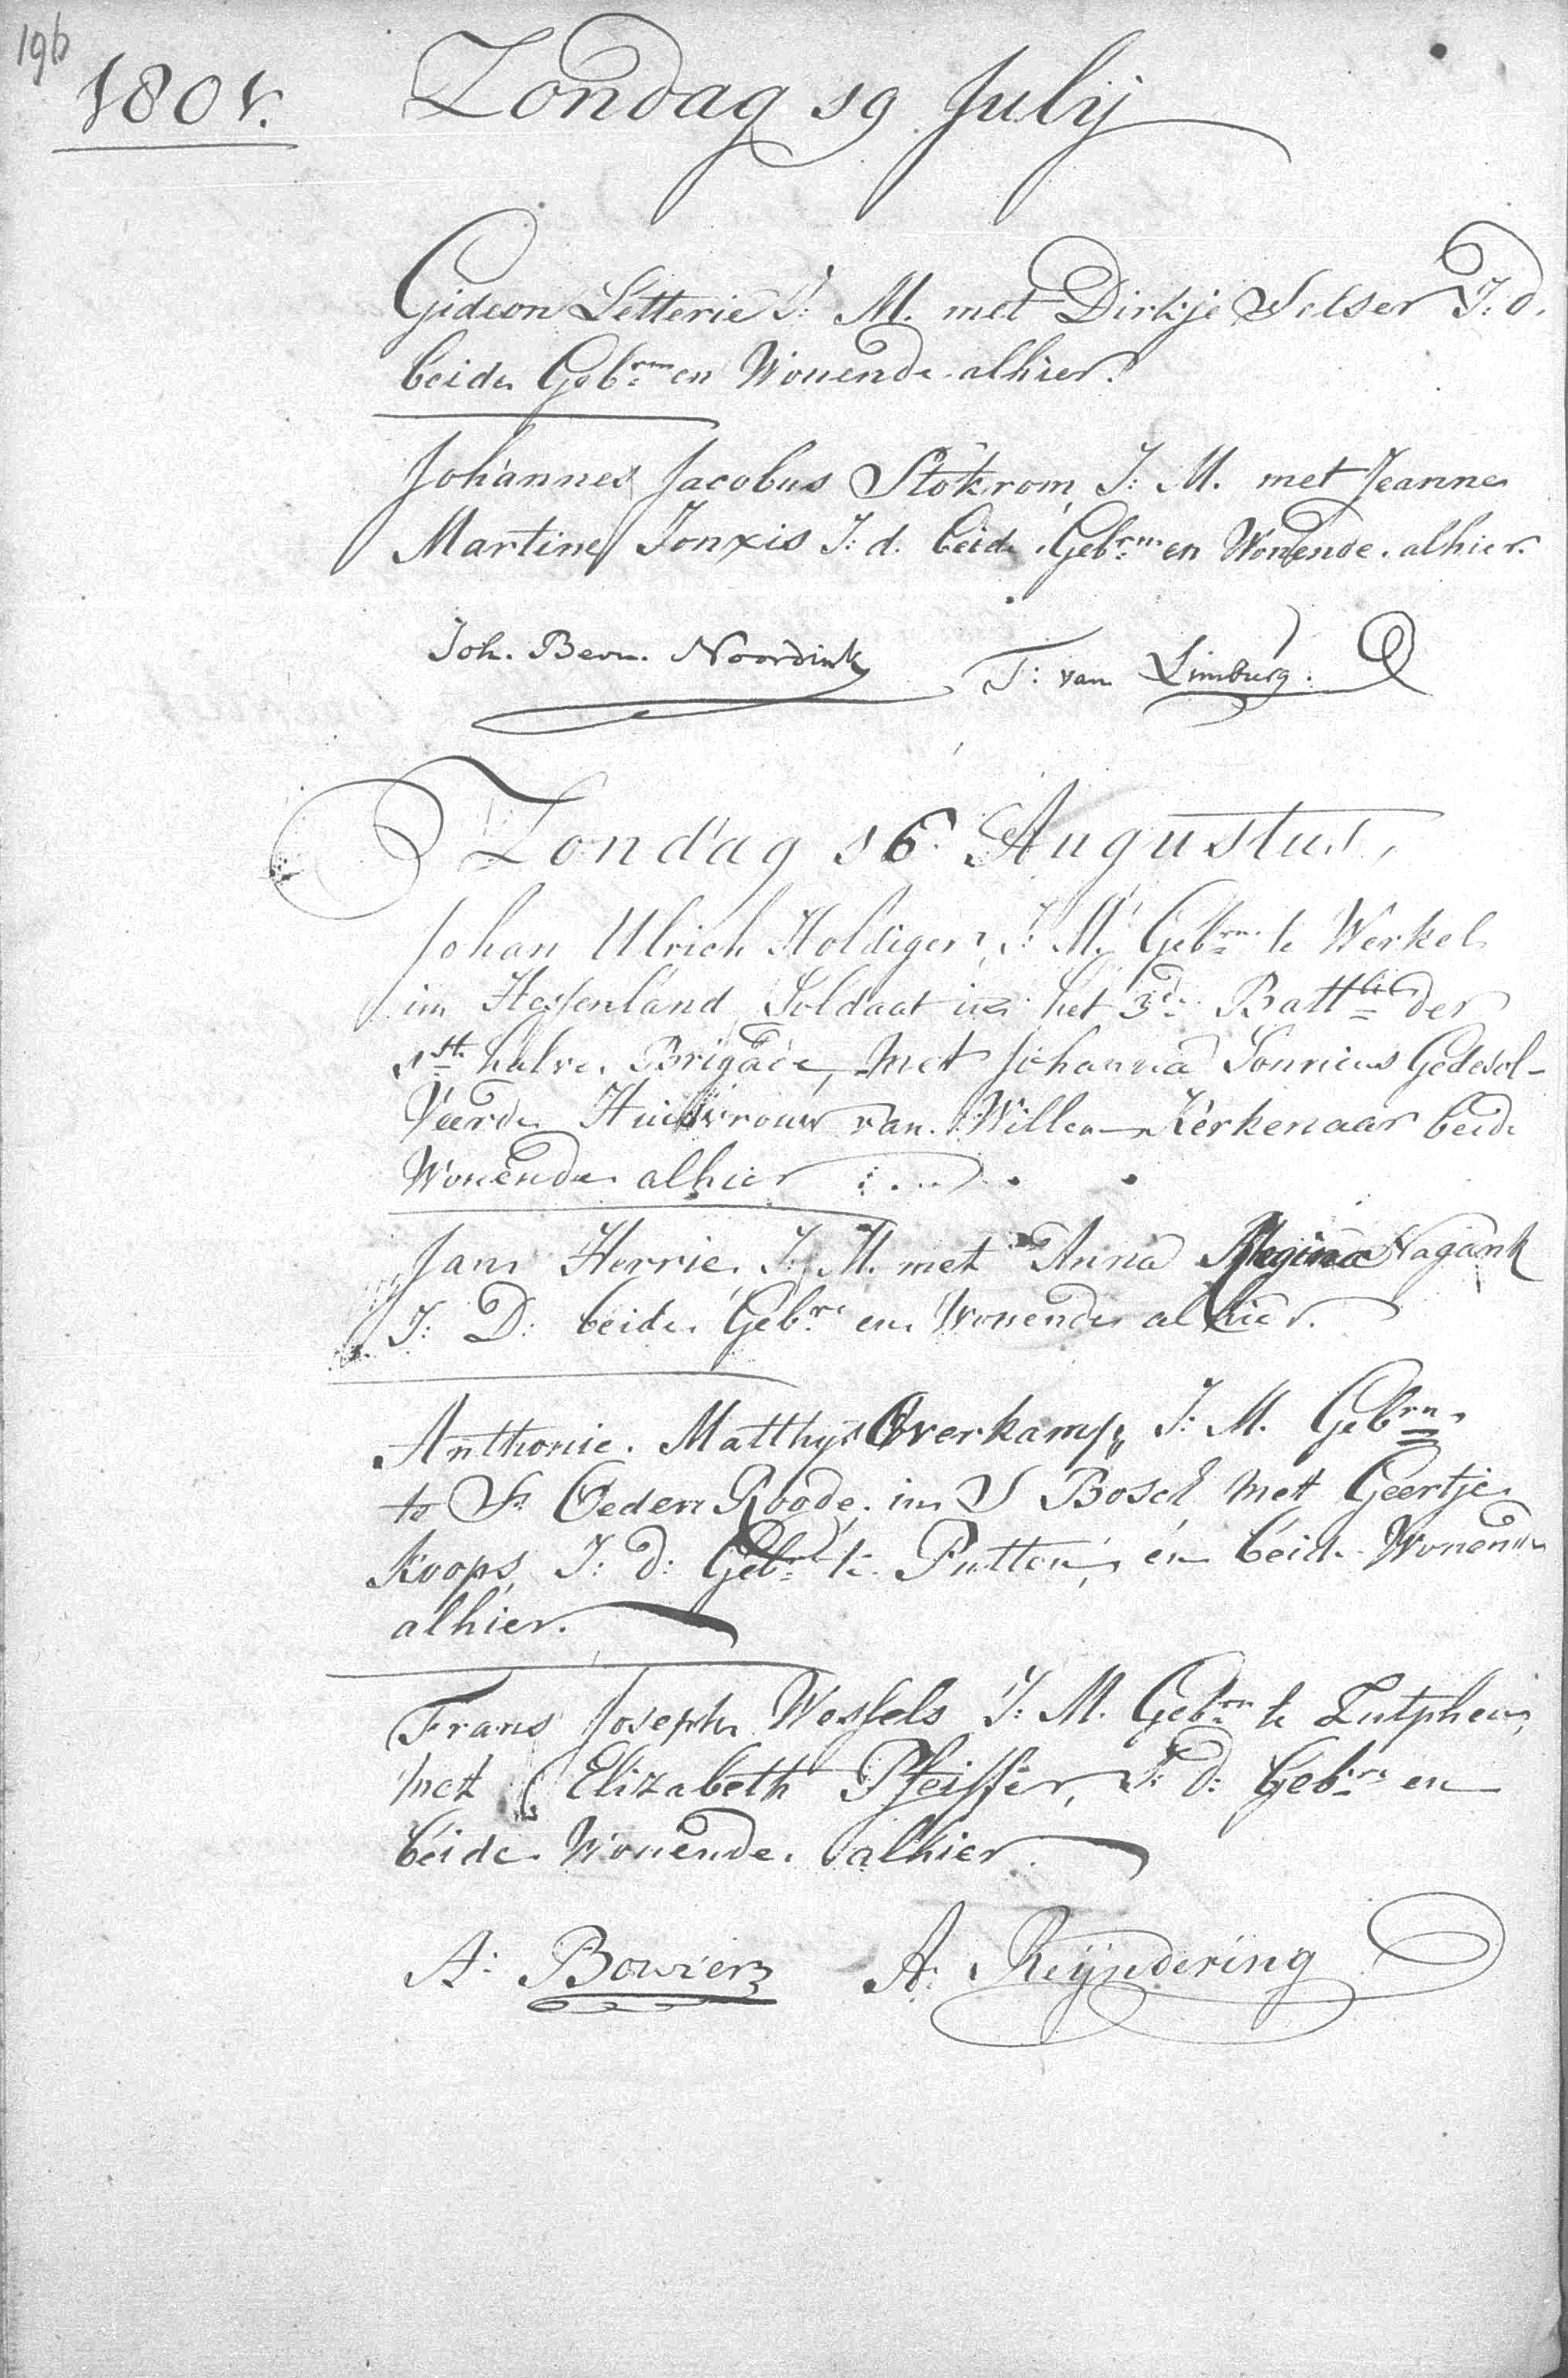 196
1801. Zondag 19 Julij
Gideon Letterie J: M. met Dirkje Selser J: d.
beide Gebrn en Wonende alhier.
Johannes Jacobus Stokrom J: M. met Jeanne
Martine Jonxis J: d. beide Gebrn en Wonende alhier.
Joh. Bern. Noordink T: van Limburg.
Zondag 16 Augustus,
Johan Ulrich Holdiger, J: M. Gebrn te Werkel
im Hessenland Soldaat in het 3de Battli der
1ste halve Brigade, met Johanna Sonnius Gedesol-
veerde Huisvrouw van Willem Kerkenaar beide
Wonende alhier
Jan Herrie J: M. met Anna Regina Nagank
J: D: beide Gebrn en Wonende alhier.
Anthonie Matthys Overkamp, J: M. Gebrn
te St Oeden Roode in S Bosch met Geertje
Koops J: d: Gebrn te Putten, en beide Wonende
alhier.
Frans Joseph Wessels J: M. Gebrn te Zutphen,
met Elizabeth Pfeiffer, J: d: Gebrn en
beide Wonende alhier.
A: Bouvierz A: Reijndering